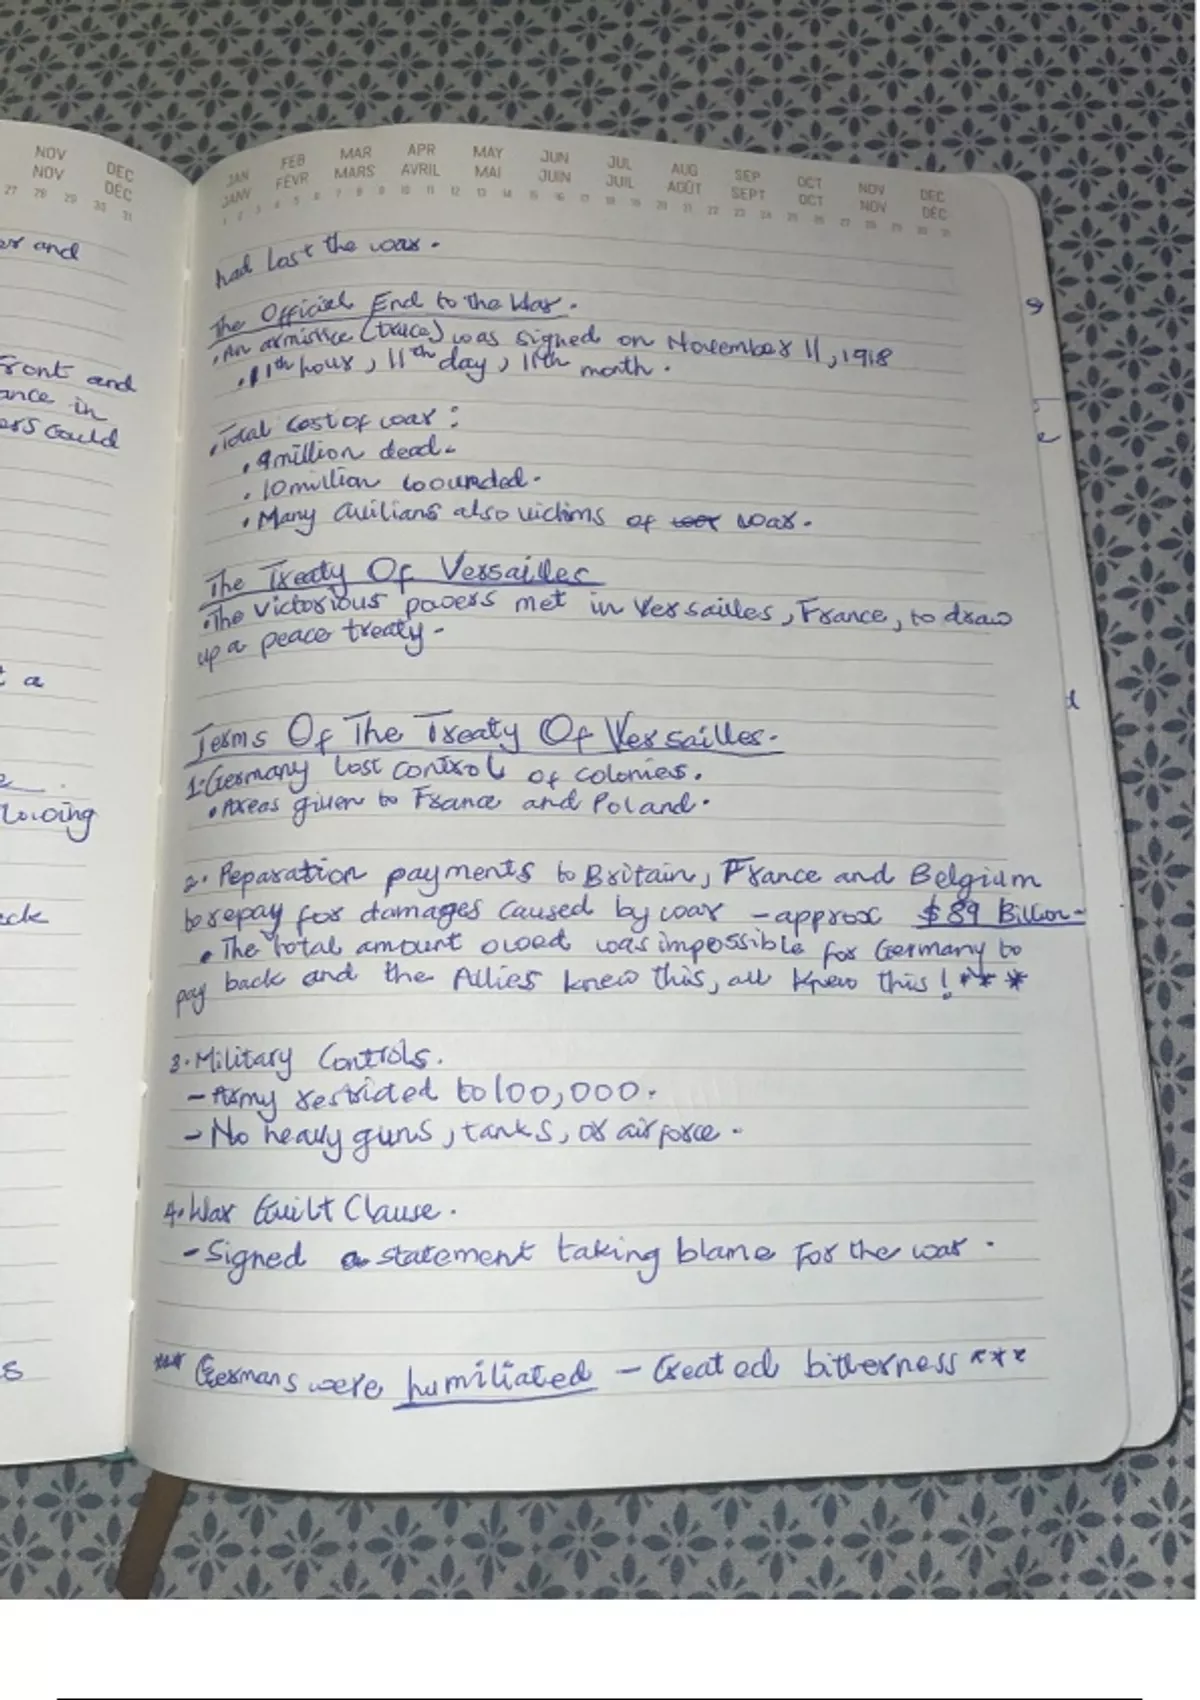 NOV DEC
NOV DÉC
27 28 29 30 31
and
Front and
ance in
ers Could
a
Lowing
ack
s
JAN FEB MAR APR MAY JUN JUL AUG SEP OCT NOV DEC
JANV FÉVR MARS AVRIL MAI JUIN JUIL AOÛT SEPT OCT NOV DÉC
1 2 3 4 5 6 7 8 9 10 11 12 13 14 15 16 17 18 19 20 21 22 23 24 25 26 27 28 29 30 31
had lost the war.
The Official End to the War.
• An armistice (truce) was signed on November 11, 1918
• 11th hour, 11th day, 11th month.
• Total cost of war:
• 9 million dead.
• 10 million wounded.
• Many civilians also victims of war.
The Treaty Of Versailles
• The victorious powers met in Versailles, France, to draw
up a peace treaty.
Terms Of The Treaty Of Versailles.
1. Germany lost control of colonies.
• Areas given to France and Poland.
2. Reparation payments to Britain, France and Belgium
to repay for damages caused by war - approx $89 Billion-
• The total amount owed was impossible for Germany to
pay back and the Allies knew this, all knew this! ***
3. Military Controls.
- Army restricted to 100,000.
- No heavy guns, tanks, or air force.
4. War Guilt Clause.
- Signed a statement taking blame for the war.
*** Germans were humiliated - Created bitterness ***